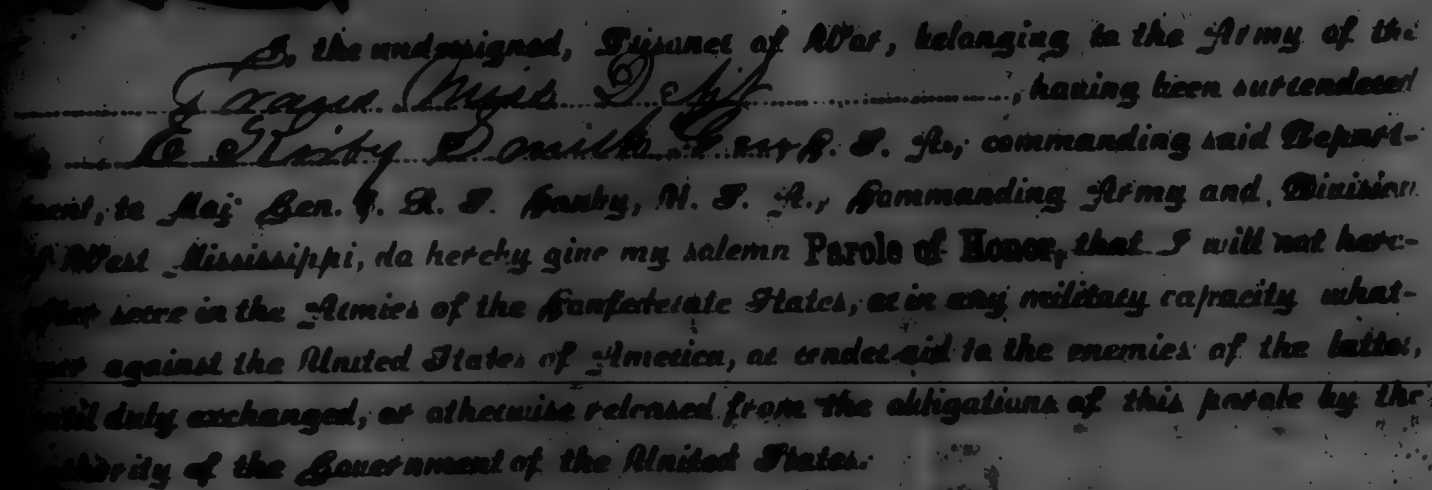 I, the undersigned, Prisoner of War, belonging to the Army of the
Trans Miss Dept, having been surrendered
by E Kirby Smith Gen, C. S. A., commanding said Depart-
ment, to Maj Gen. E. R. S. Canby, U. S. A., Commanding Army and Division
of West Mississippi, do hereby give my solemn Parole of Honor, that I will not here-
after serve in the Armies of the Confederate States, or in any military capacity what-
ever against the United States of America, or render aid to the enemies of the latter,
until duly exchanged, or otherwise released from the obligations of this parole by the
authority of the Government of the United States.